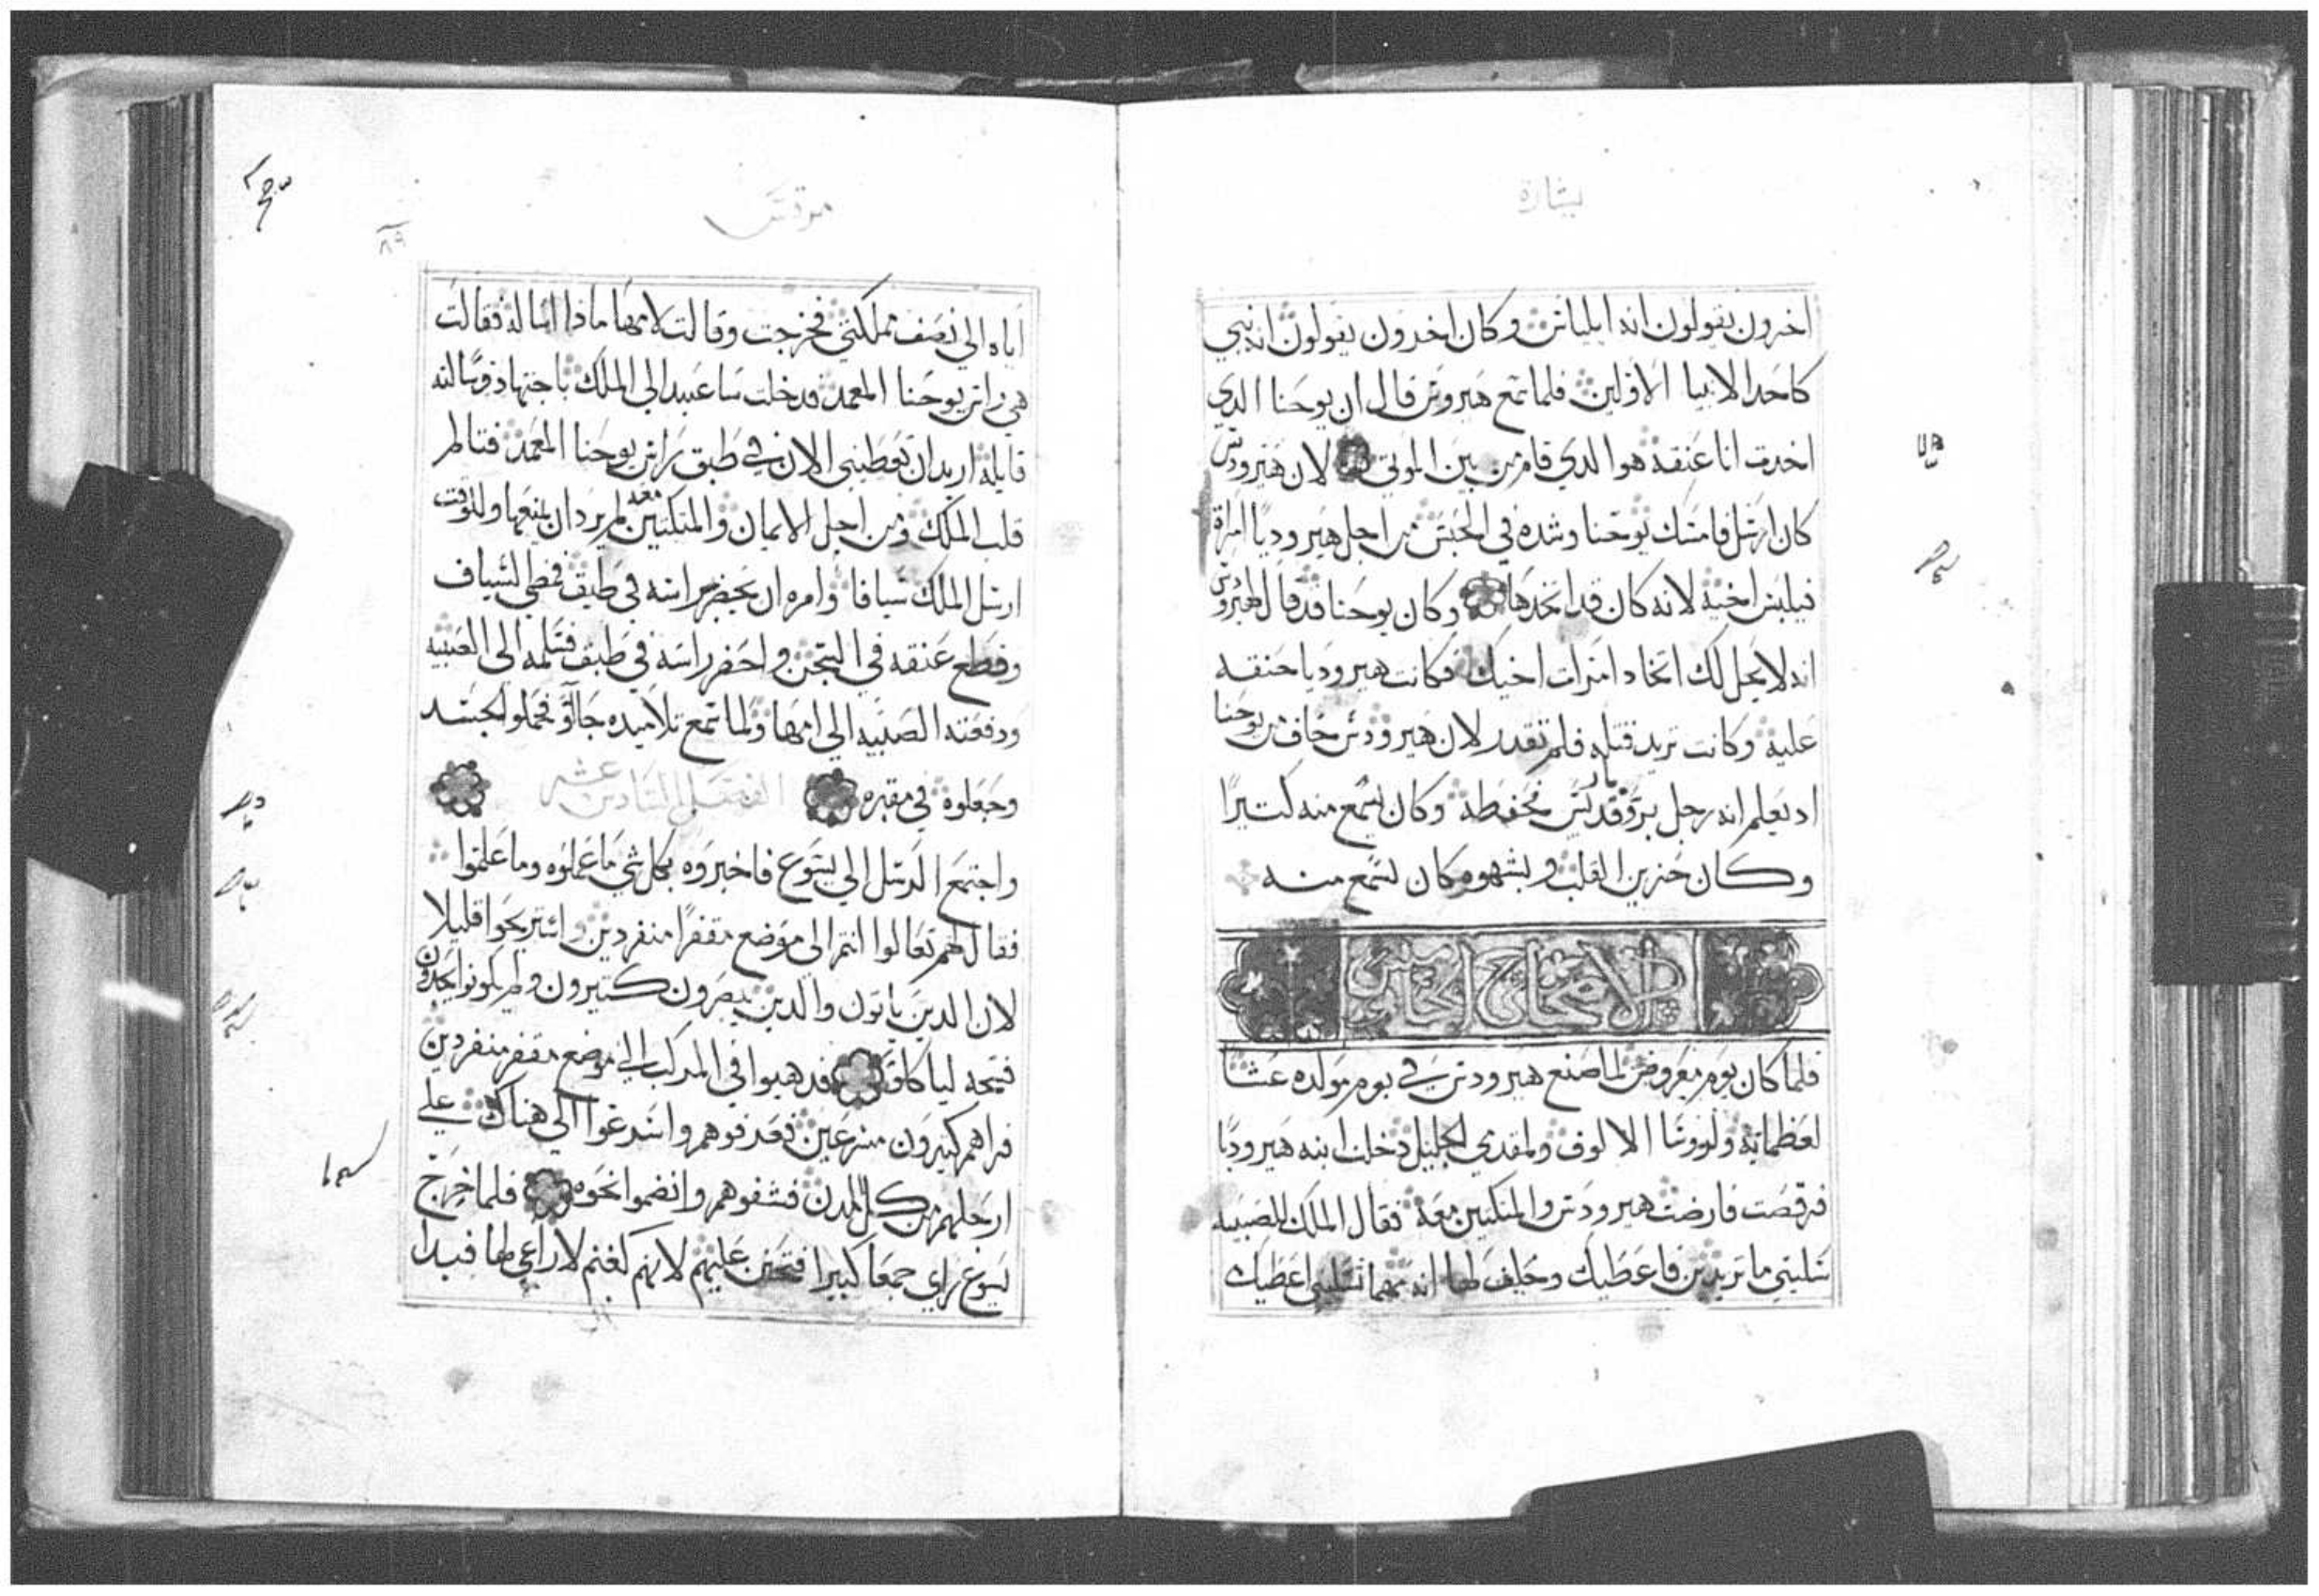 بشارة
اخرون يقولون انه ايلياس وكان اخرون يقولون انه نبي
كاحد الانبيا الاولين فلما سمع هيرودس قال ان يوحنا الدي
اخدت انا عنقه هو الدي قام من بين الموتي لان هيرودس
كان ارسل فامسك يوحنا وشده في الحبس من اجل هيروديا امراة
فيلبس اخيه لانه كان قد اتخدها وكان يوحنا قد قال لهيرودس
انه لا يحل لك اتخاد امرات اخيك فكانت هيروديا حنقه
عليه وكانت تريد قتله فلم تقدر لان هيرودس خاف من يوحنا
اد يعلم انه رجل بار وقديس فحفظه وكان يسمع منه كتيرا
وكان حزين القلب وبشهوه كان يسمع منه
الاصحاح الخامس
فلما كان يوم مفروض لما صنع هيرودس في يوم مولده عشا
لعظمايه ولروسا الالوف ولمقدمي الجليل دخلت ابنه هيروديا
فرقصت فارضت هيرودس والمتكيين معه فقال الملك للصبيه
سليني ما تريدين فاعطيك وحلف لها انه مهما تسليني اعطيك
مرقس
٨٩
اياه الي نصف مملكتي فخرجت وقالت لامها ماذا اساله فقالت
هي راس يوحنا المعمد فدخلت ساعيد الي الملك باجتهاد وسالته
قايله اريد ان تعطيني الان في طبق راس يوحنا المعمد فتالم
قلب الملك ومن اجل الايمان والمتكيين معه لم يرد ان يمنعها وللوقت
ارسل الملك سيافا وامره ان يحضر راسه في طبق فمضي السياف
وقطع عنقه في السجن واحضر راسه في طبق فسلمه الي الصبيه
ودفعته الصبيه الي امها ولما سمع تلاميده جاؤ فحملوا الجسد
وجعلوه في مقبره الفصل السادس عشر
واجتمع الرسل الي يسوع فاخبروه بكل شي ما عملوه وما علموا
فقال لهم تعالوا انتم الي موضع مقفرا منفردين واستريحوا قليلا
لان الدين ياتون والدين يصرون كتيرون ولم يكونوا يجدون
فسحه لياكلو فدهبوا في المركب الي موضع مقفر منفردين
فراهم كتيرون مسرعين فعرفوهم واسرعوا الي هناك علي
ارجلهم من كل المدن فسبقوهم وانضموا نحوه فلما خرج
يسوع راي جمعا كبيرا فتحنن عليهم لانهم كغنم لا راعي لها فبدا